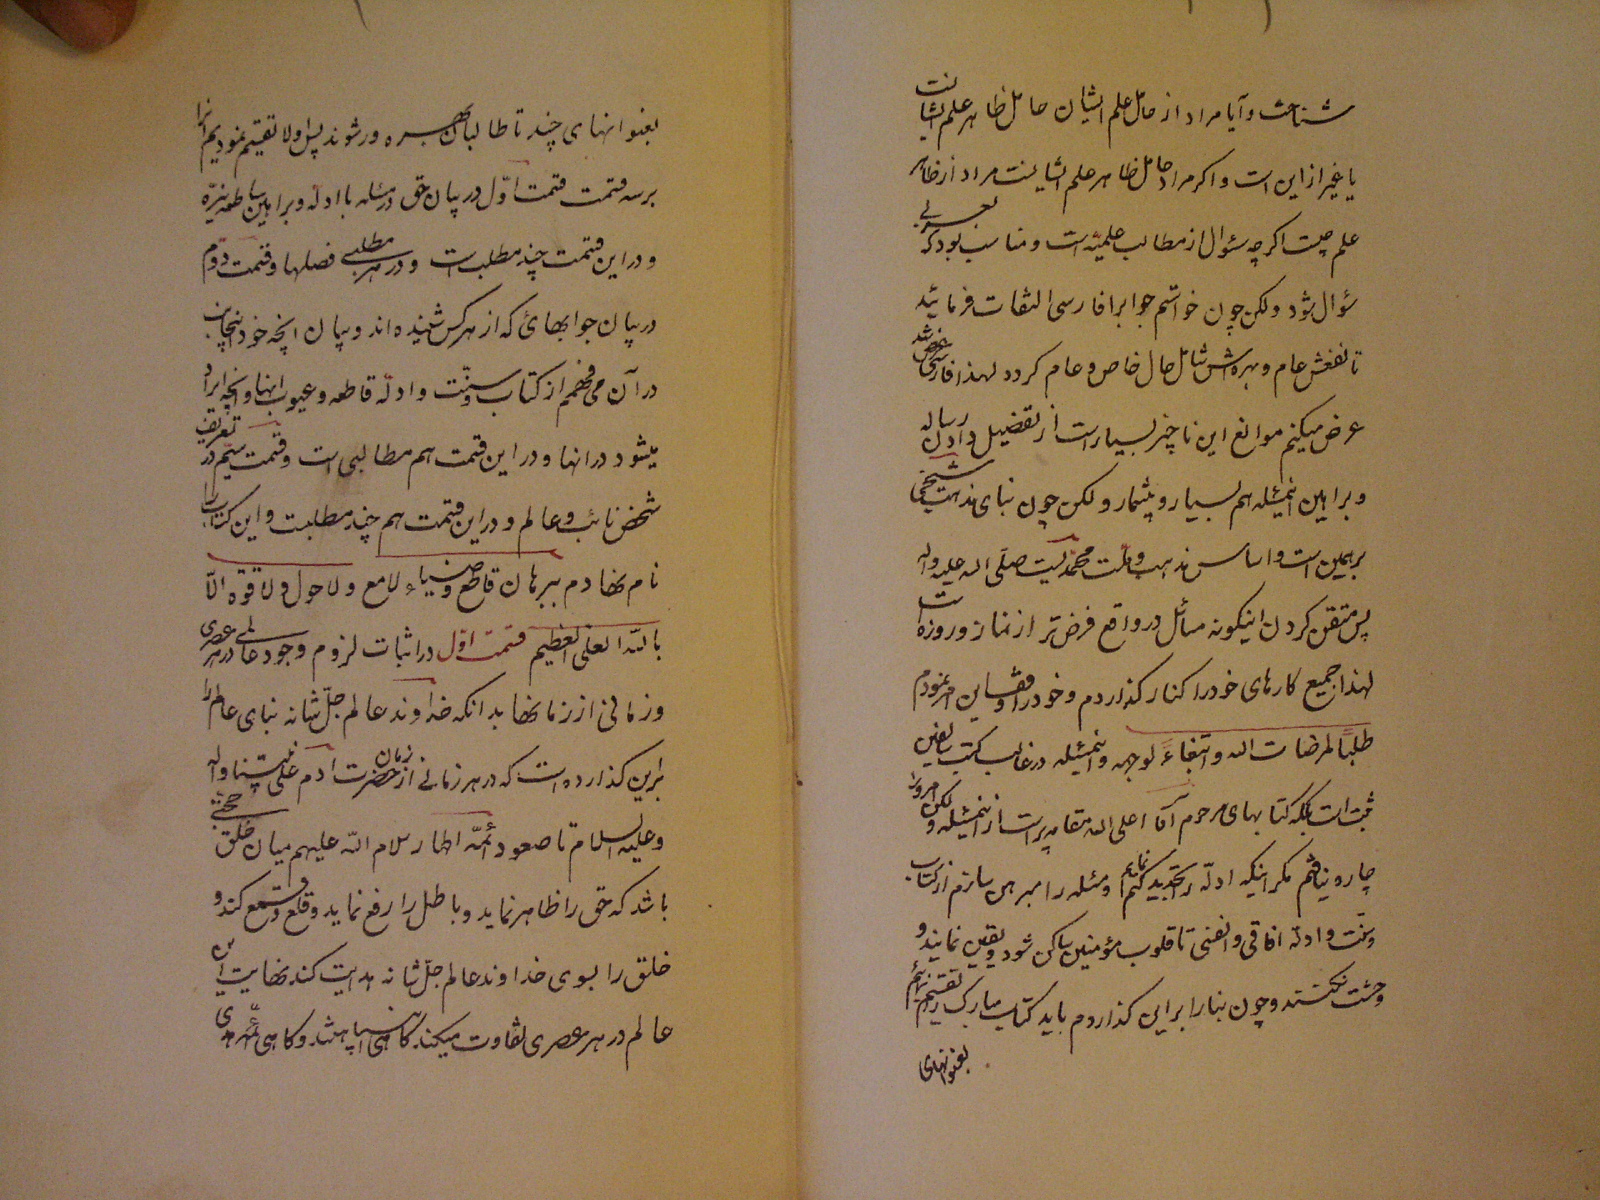 شناخت و آیا مراد از حامل علم ایشان حامل ظاهر علم ایشانست
یا غیر از این است و اگر مراد حامل ظاهر علم ایشانست مراد از ظاهر
علم چیست اگرچه سئوال از مطالب علمیّه است و مناسب بود که بعربی
سئوال شود ولکن چون خواستم جواب را فارسی التفات فرمائید
تا نفعش عام و بهره‌اش شامل حال خاص و عام گردد لهذا فارسی عرض شد
عرض میکنم موانع این ناچیز بسیار است از تفصیل و ادله
و براهین اینمسئله هم بسیار و بیشمار ولکن چون بنای مذهب شیخی
بر همین است و اساس مذهب و ملت محمّدیست صلّی الله علیه و اله
پس متقن کردن اینگونه مسائل در واقع فرض‌تر از نماز و روزه است
لهذا جمیع کارهای خود را کنار گذاردم و خود را وقف این امر نمودم
طلباً لمرضات الله و ابتغاءً لوجهه و اینمسئله در غالب کتب سابقین
ثبت است بلکه کتابهای مرحوم آقا اعلی الله مقامه پر است از اینمسئله ولکن امروز
چاره نیافتم مگر اینکه ادلّه را تجدید کنم و مسئله را مبرهن سازم از کتاب
و سنّت و ادلّه افاقی و انفسی تا قلوب مؤمنین ساکن شود و یقین نمایند و
وحشت نکنند و چون بنا را بر این گذاردم باید کتاب مبارک را تقسیم نمایم
بعنوانهای
بعنوانهای چند تا طالبان بهره‌ور شوند پس اولا تقسیم نمودیم انرا
بر سه قسمت قسمت اوّل در بیان حق در مسئله با ادلّه و براهین ساطعه نیّره
و در این قسمت چند مطلب است و در هر مطلبی فصلها و قسمت دوّم
در بیان جوابهائی که از هر کس شنیده‌اند و بیان انچه خود اینجانب
در آن می‌فهمم از کتاب و سنّت و ادلّه قاطعه و عیوب انها و انچه ایراد
میشود در انها و در این قسمت هم مطالبی است و قسمت سیّم در تعریف
شخص نائب و عالم و در این قسمت هم چند مطلبست و این کتاب را
نام نهادم ببرهان قاطع و ضیاء لامع و لا حول و لا قوة الّا
بالله العلی العظیم قسمت اوّل در اثبات لزوم وجود عالمی در هر عصری
و زمانی از زمانها بدانکه خداوند عالم جلّ شانه بنای عالم را
بر این گذارده است که در هر زمانی از زمان حضرت ادم علی نبیّنا و اله
و علیه السلام تا صعود ائمّه اطهار سلام الله علیهم میان خلق حجّتی
باشد که حق را ظاهر نماید و باطل را رفع نماید و قلع و قمع کند و
خلق را بسوی خداوند عالم جلّ شانه هدایت کند نهایت این
عالم در هر عصری تفاوت میکند گاهی انبیا هستند و گاهی ائمّه هدی